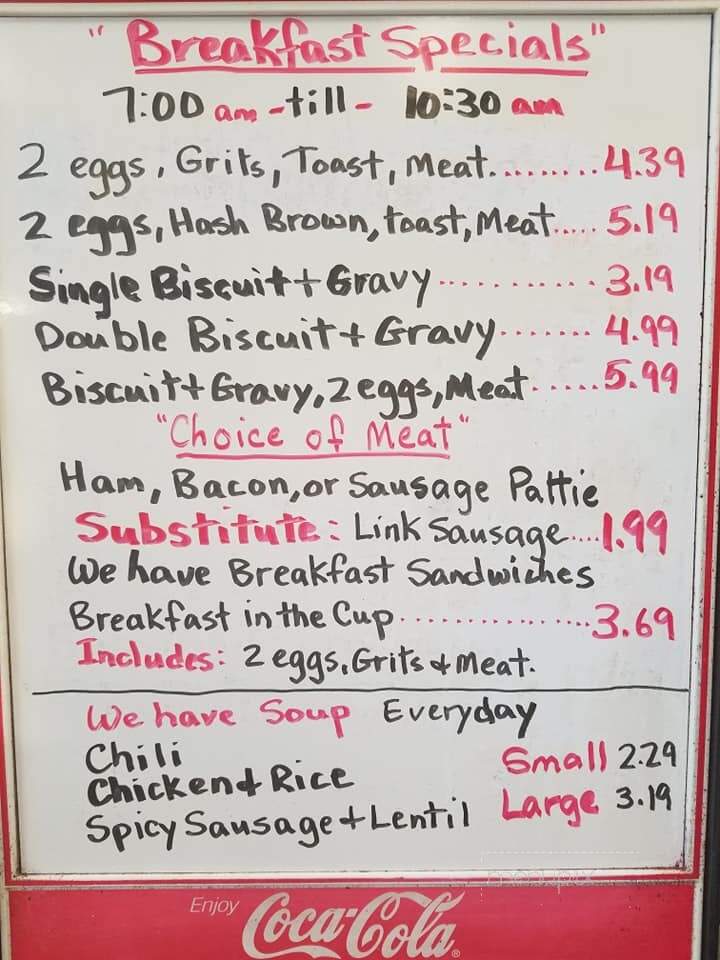 "Breakfast Specials"
7:00 am - till - 10:30 am
2 eggs, Grits, Toast, Meat.........4.39
2 eggs, Hash Brown, toast, Meat..... 5.19
Single Biscuit + Gravy........... 3.19
Double Biscuit + Gravy....... 4.99
Biscuit + Gravy, 2 eggs, Meat......5.99
"Choice of Meat"
Ham, Bacon, or Sausage Pattie
Substitute: Link Sausage....1.99
We have Breakfast Sandwiches
Breakfast in the Cup...............3.69
Includes: 2 eggs, Grits & Meat.
We have Soup Everyday
Chili
Small 2.29
Chicken & Rice
Large 3.19
Spicy Sausage + Lentil
menupix
Enjoy
Coca-Cola®